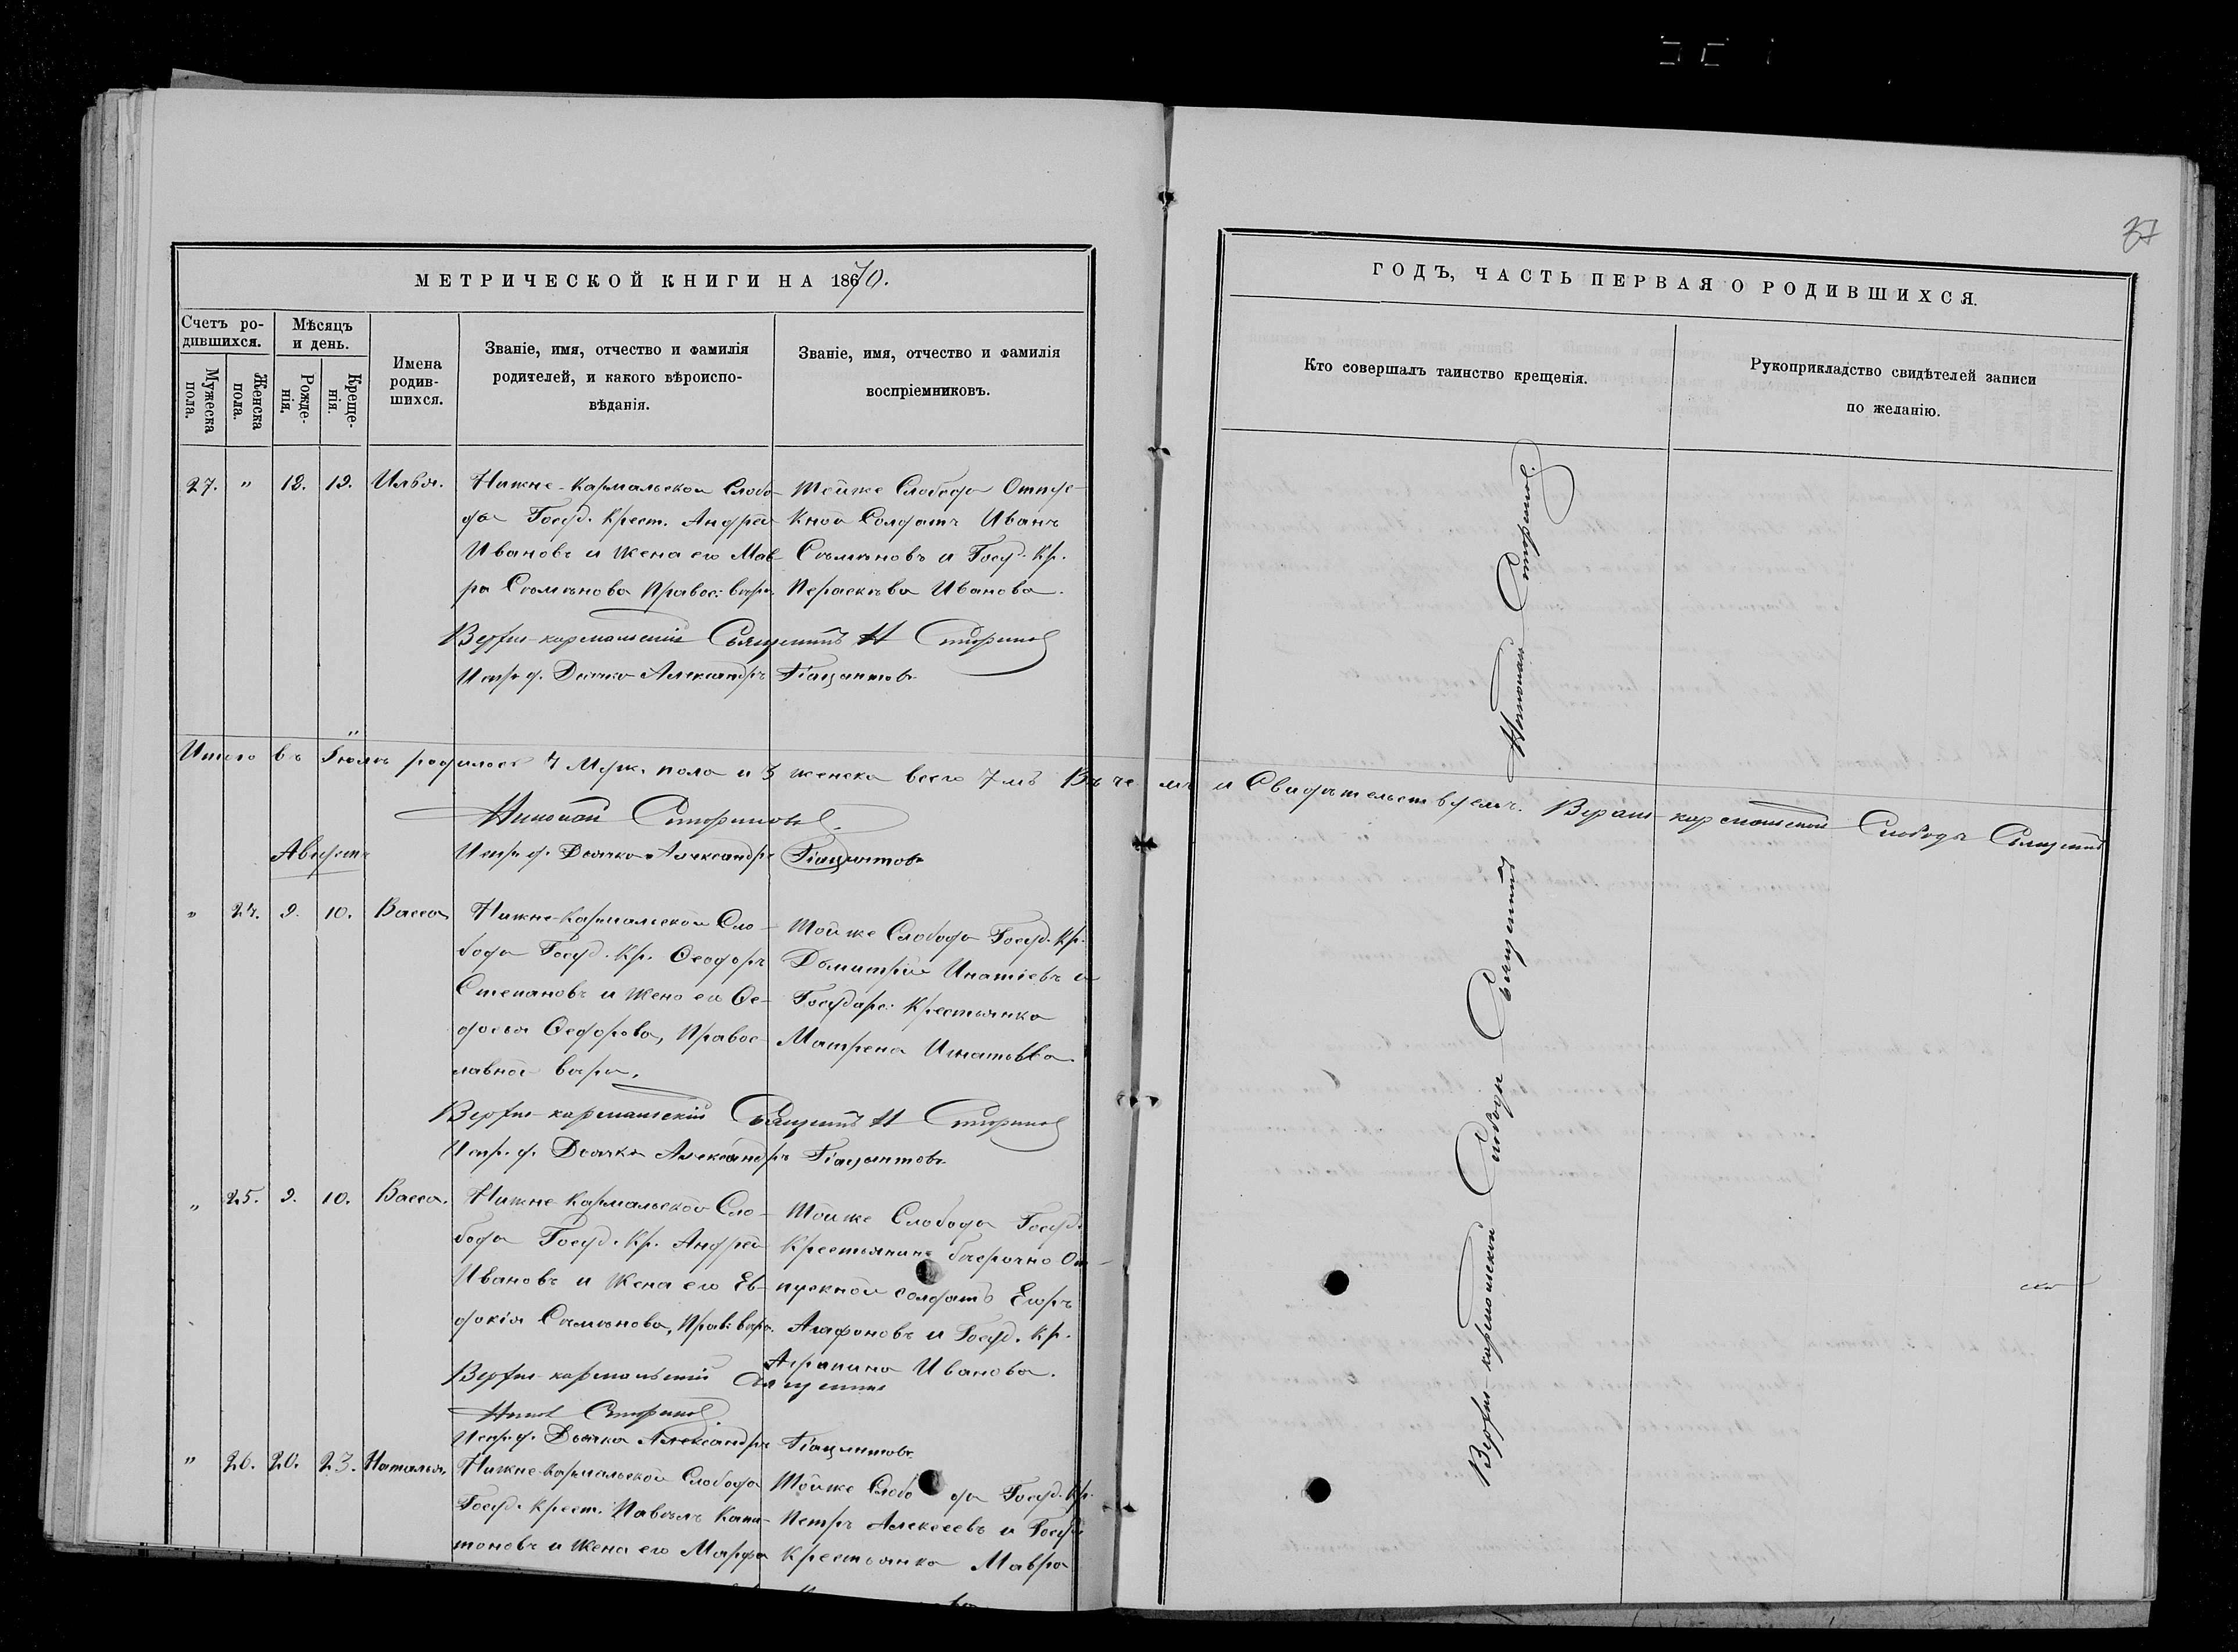 37
МЕТРИЧЕСКОЙ КНИГИ НА 1870.
ГОДЪ, ЧАСТЬ ПЕРВАЯ О РОДИВШИХСЯ.
Счетъ ро-
дившихся.
Мужеска
пола.
Женска
пола.
Мѣсяцъ
и день.
Рожде-
нія.
Креще-
нія.
Имена
родив-
шихся.
Званіе, имя, отчество и фамилія
родителей, и какого вѣроиспо-
вѣданія.
Званіе, имя, отчество и фамилія
воспріемниковъ.
Кто совершалъ таинство крещенія.
Рукоприкладство свидѣтелей записи
по желанію.
27. " 12. 12. Илья.
Нижне-Кармальской Слобо-
ды Госуд. Крест. Андрей
Ивановъ и жена его Мав-
ра Сѣмѣнова Правос: вѣры.
Тойже Слободы Отпус-
кной Солдатъ Иванъ
Сѣмѣновъ и Госуд. Кр.
Пераскѣва Иванова.
Верхне-кармальскій Священникъ Н
Испр. д. Дьячка Александръ Гіацинтовъ
Итого въ Іюлѣ родилось 4 Муж. пола и 3 женска всего 7мъ Въ чемъ и Свидѣтельствуемъ. Верхне-кармальской Слободы Священникъ
Николай
Испр. д. Дьячка Александръ Гіацинтовъ
Августъ
" 24. 9. 10. Васса.
Нижне-Кармальской Сло-
боды Госуд. Кр. Ѳеодоръ
Степановъ и жена его Ѳе-
досья Ѳедорова, Правос-
лавной вѣры.
Тойже Слободы Госуд. Кр.
Дьмитрій Игнатіевъ и
Государс: Крестьянка
Матрена Игнатьева
Верхне-кармальскій Священникъ Н
Испр. д. Дьячка Александръ Гіацинтовъ
" 25. 9. 10. Васса.
Нижне-Кармальской Сло-
боды Госуд. Кр. Андрей
Ивановъ и жена его Ев-
докія Сѣмѣнова, Прав: вѣры.
Тойже Слободы Госуд.
Крестьянинъ бѣсрочно От-
пускной солдатъ Егоръ
Агафоновъ и Госуд. Кр.
Агрипина Иванова.
Верхне-кармальскій Священникъ
Испр. д. Дьячка Александръ Гіацинтовъ
" 26. 20. 23. Наталья.
Нижне-Кармальской Слободы
Госуд. Крест. Павѣлъ Капи-
тоновъ и жена его Марфа
Тойже Слободы Госуд. Кр.
Петръ Алексеевъ и Госуд.
крестьянка Мавра
Верхне-кармальской Слободы Священникъ Николай